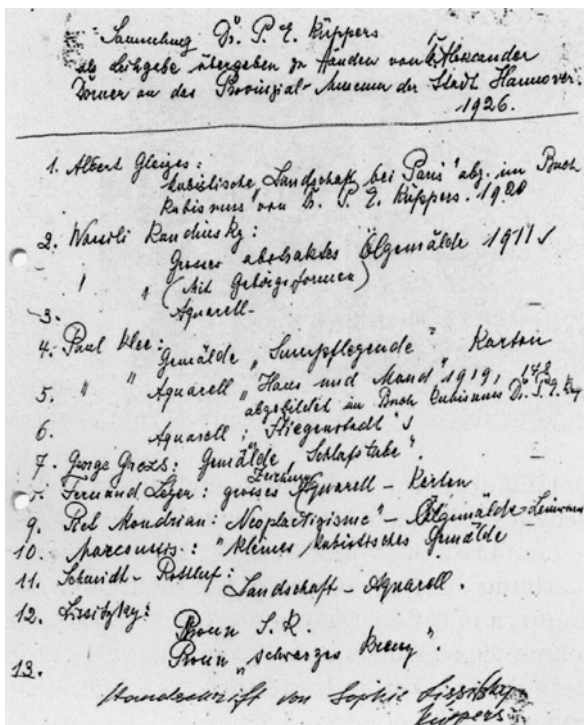 Sammlung Dr. P. E. Küppers
als Leihgabe übergeben zu Handen von Dr. Alexander
Dorner an das Provinzial-Museum der Stadt Hannover.
1926.
1. Albert Gleizes:
"kubistische Landschaft bei Paris" abg. im Buch
"Kubismus" von Dr. P. E. Küppers. 1920
2. Wassili Kandinsky:
Grosses abstraktes Ölgemälde 1911
" " (Mit Gebirgsformen)
3. Aquarell
4. Paul Klee: Gemälde "Sumpflegende", Karton
5. " " Aquarell "Haus und Mond" 1919, 142
abgebildet im Buch Cubismus Dr. P. E. Küp
6. Aquarell; "Stiegenstadt"
7. George Grozs: Gemälde "Schlafstube".
Fernand Léger: grosses Aquarell - Karton
Zeichnung
9. Piet Mondrian: "Neoplastizisme" - Ölgemälde - Leinwand
10. Marcoussis: "kleines kubistisches Gemälde
11. Schmidt-Rottluf:
Landschaft - Aquarell.
12. Lissitzky:
Proun S. K.
Proun "schwarzes Kreuz".
13.
Handschrift von Sophie Lissitzky-
Küppers